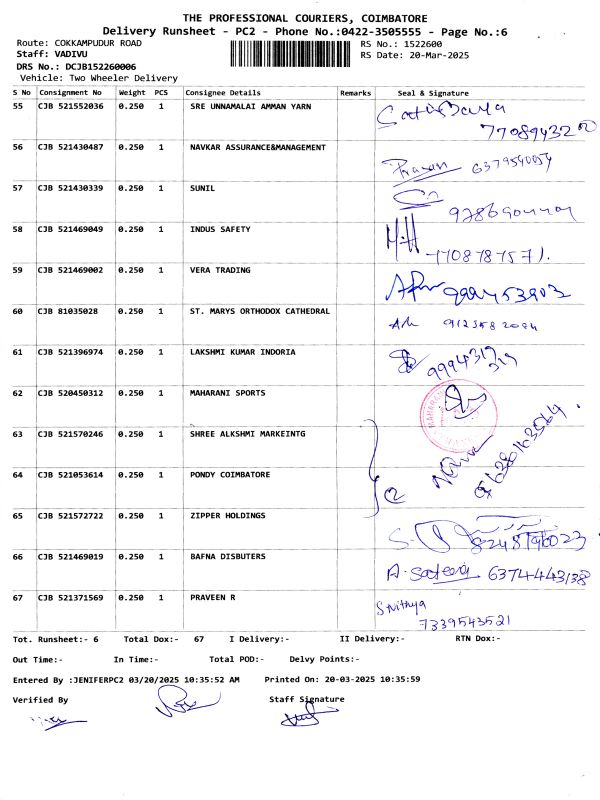 THE PROFESSIONAL COURIERS, COIMBATORE
Delivery Runsheet - PC2 - Phone No.:0422-3505555 - Page No.:6
Route: COKKAMPUDUR ROAD
Staff: VADIVU
DRS No.: DCJB152260006
Vehicle: Two Wheeler Delivery
RS No.: 1522600
RS Date: 20-Mar-2025
S No Consignment No Weight PCS Consignee Details Remarks Seal & Signature
55 CJB 521552036 0.250 1 SRE UNNAMALAI AMMAN YARN
56 CJB 521430487 0.250 1 NAVKAR ASSURANCE&MANAGEMENT
57 CJB 521430339 0.250 1 SUNIL
58 CJB 521469049 0.250 1 INDUS SAFETY
59 CJB 521469002 0.250 1 VERA TRADING
60 CJB 81035028 0.250 1 ST. MARYS ORTHODOX CATHEDRAL
61 CJB 521396974 0.250 1 LAKSHMI KUMAR INDORIA
62 CJB 520450312 0.250 1 MAHARANI SPORTS
63 CJB 521570246 0.250 1 SHREE ALKSHMI MARKEINTG
64 CJB 521053614 0.250 1 PONDY COIMBATORE
65 CJB 521572722 0.250 1 ZIPPER HOLDINGS
66 CJB 521469019 0.250 1 BAFNA DISBUTERS 6374443138
67 CJB 521371569 0.250 1 PRAVEEN R S Nithya
7339543521
Tot. Runsheet:- 6 Total Dox:- 67 I Delivery:- II Delivery:- RTN Dox:-
Out Time:- In Time:- Total POD:- Delvy Points:-
Entered By :JENIFERPC2 03/20/2025 10:35:52 AM Printed On: 20-03-2025 10:35:59
Verified By Staff Signature